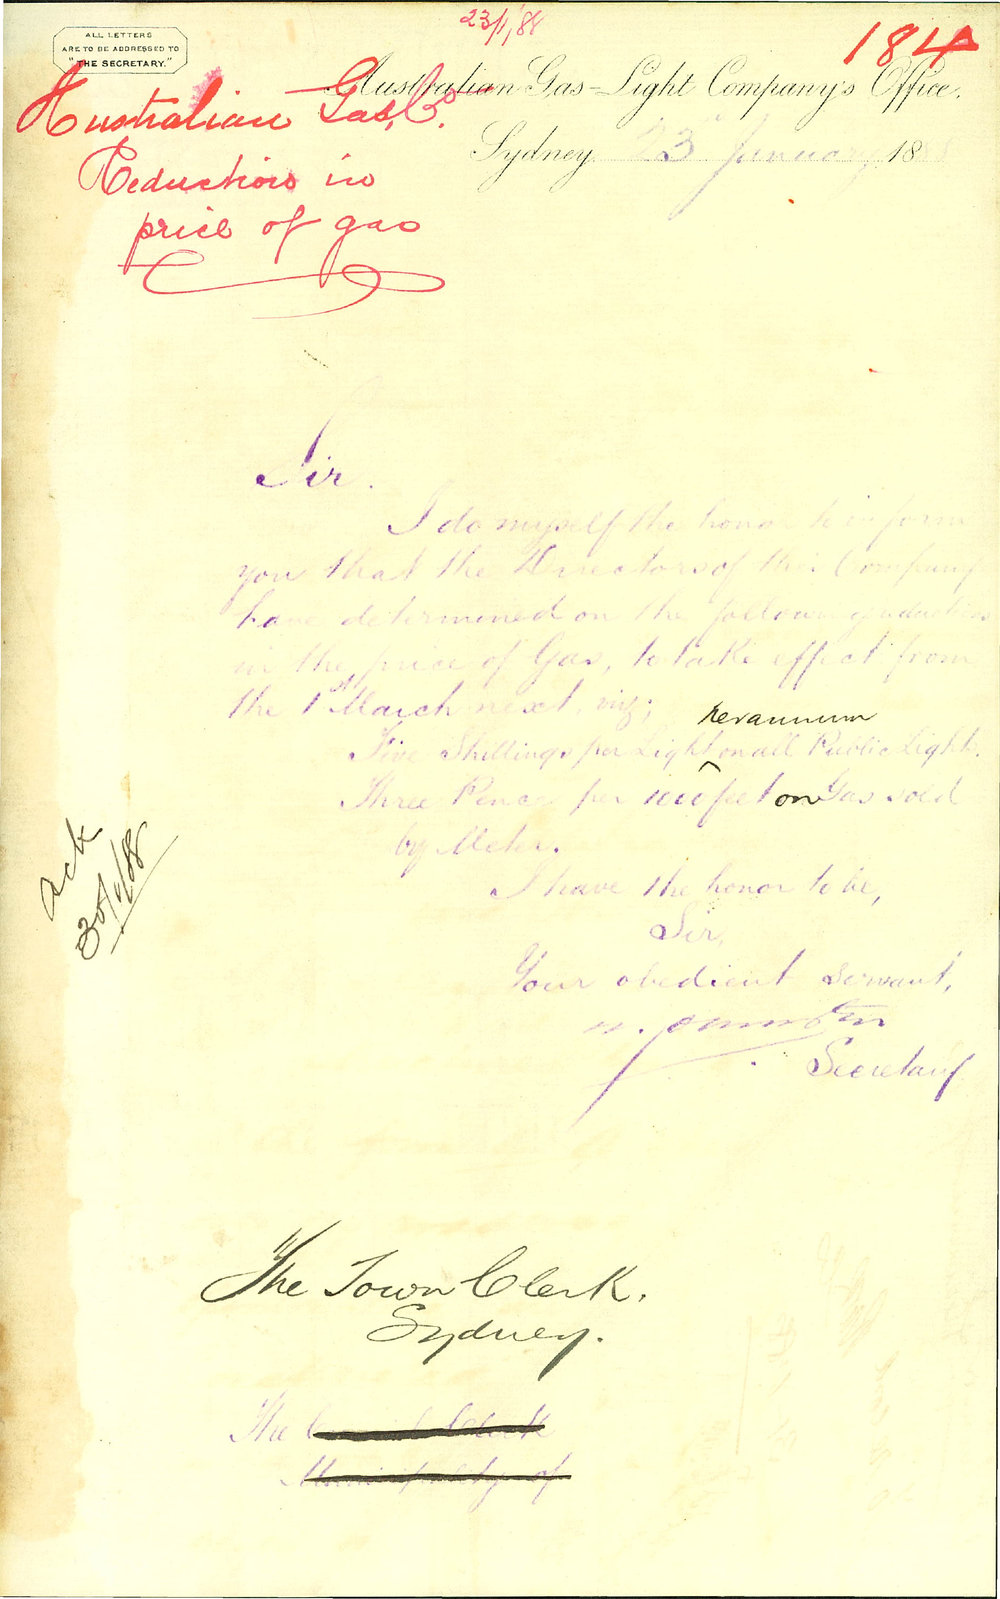 23/1/88
184
ALL LETTERS
ARE TO BE ADDRESSED TO
"THE SECRETARY."
Australian Gas-Light Company's Office,
Australian Gas Co.
Sydney 23rd January 1888
Reduction in
price of gas
Sir.
I do myself the honor to inform
you that the Directors of this Company
have determined on the following reductions
in the price of Gas, to take effect from
the 1st March next, viz;
per annum
Five Shillings per Light ‸ on all Public Lights.
Three Pence per 1000 feet on Gas sold
by Meter.
Ack
30/1/88
I have the honor to be,
Sir,
Your obedient servant,
Secretary
The Town Clerk.
Sydney.
The Council Clerk
Municipality of